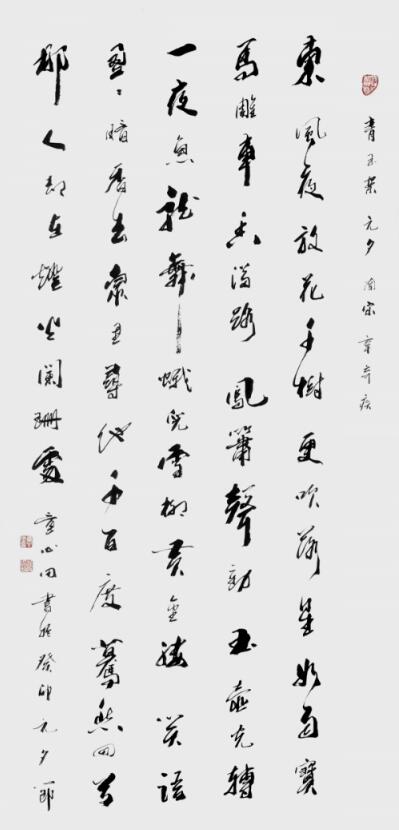 青玉案 元夕 南宋 辛弃疾
東風夜放花千樹更吹落星如雨寶
馬雕車香滿路鳳簫聲動玉壺光轉
一夜魚龍舞蛾兒雪柳黃金縷笑語
盈〻暗香去衆里尋他千百度驀然回首
那人却在燈火闌珊處 童心田書於癸卯元夕節